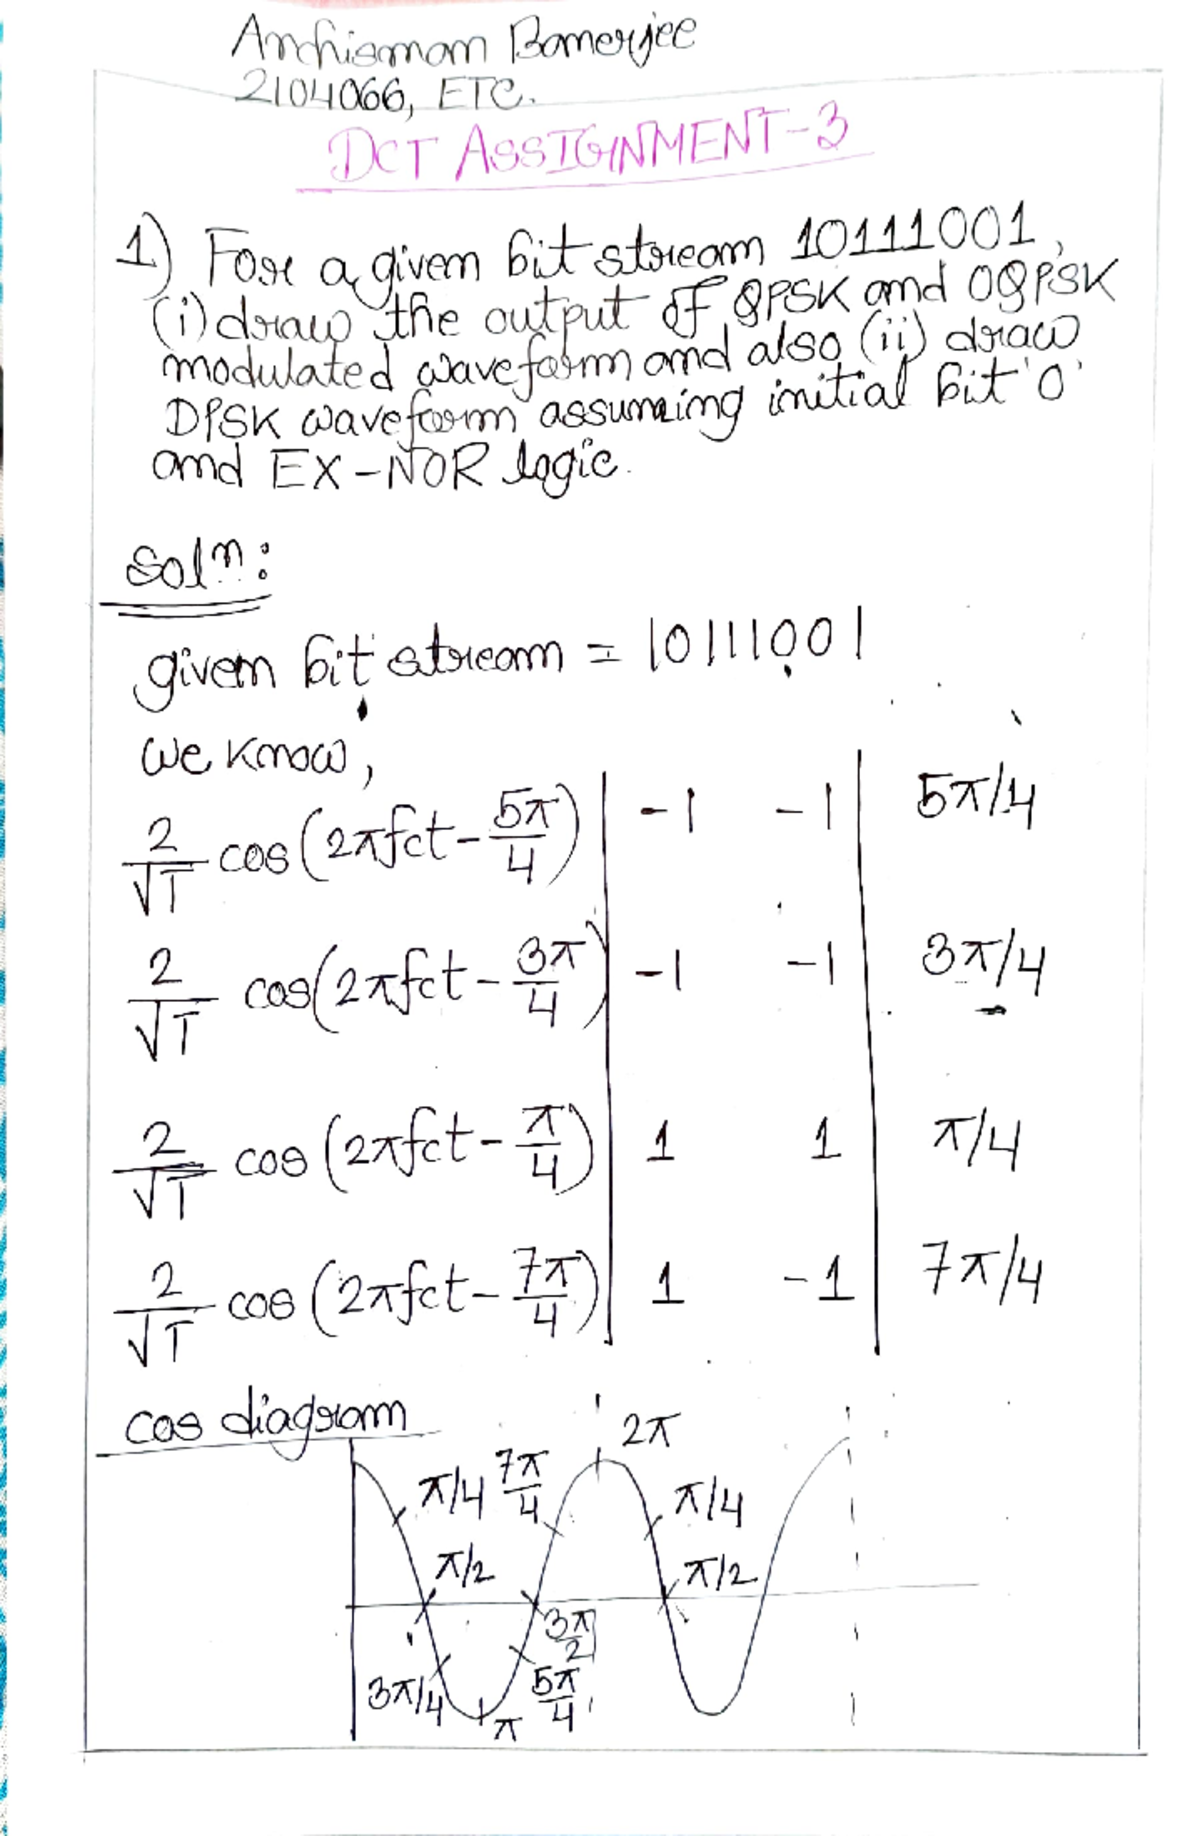 Archisman Banerjee
2104066, ETC.
DCT ASSIGNMENT-3
1) For a given bit stream 10111001,
(i) draw the output of QPSK and OQPSK
modulated waveform and also (ii) draw
DPSK waveform assuming initial bit '0'
and EX-NOR logic.
Solⁿ:
given bit stream = 10111001
we know,
2/√T cos(2πfct - 5π/4) | -1 -1 | 5π/4
2/√T cos(2πfct - 3π/4) | -1 -1 | 3π/4
2/√T cos(2πfct - π/4) | 1 1 | π/4
2/√T cos(2πfct - 7π/4) | 1 -1 | 7π/4
cos diagram
2π
π/4 7π/4 π/4
π/2 π/2
3π/2
3π/4 5π/4
π